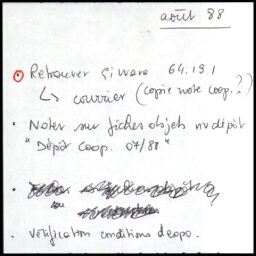 août 88
Retrouver Çiwara 64.19.1
↳ courrier (copie note coop. ?)
• Noter sur fiches objets nv dépôt
"Dépôt Coop. 07/88"
• vérification conditions d'expo.